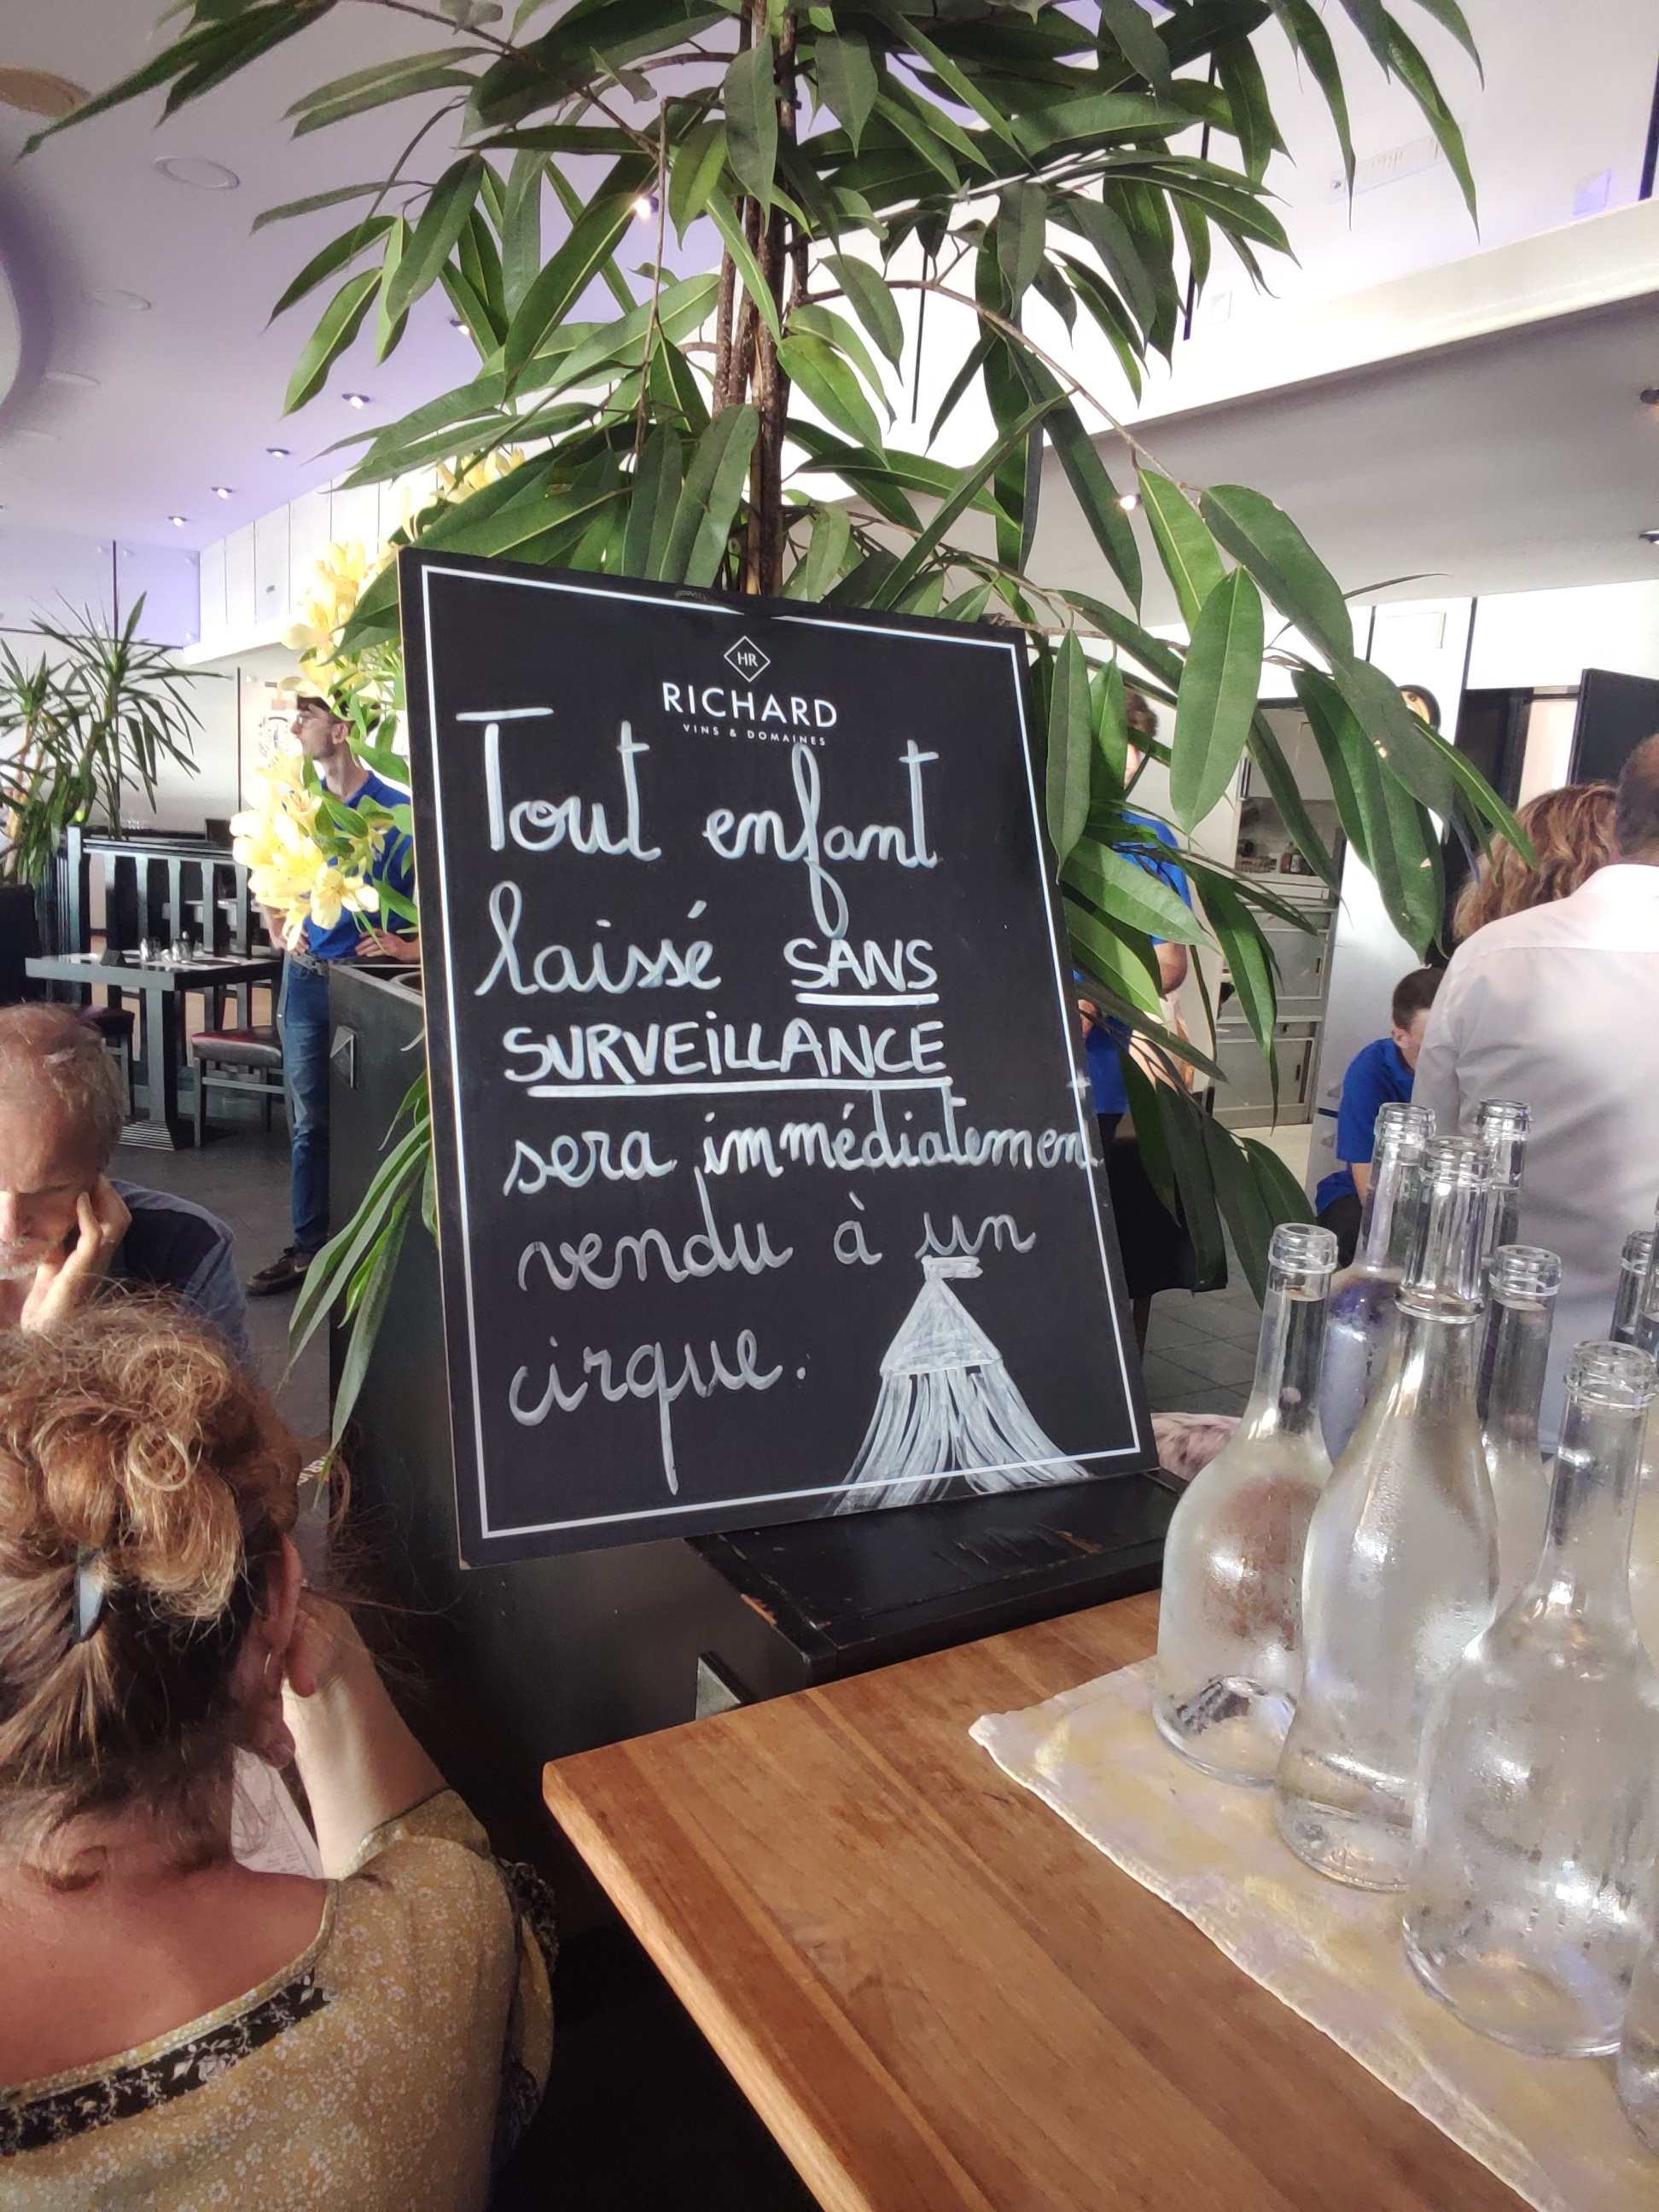 HR
RICHARD
VINS & DOMAINES
Tout enfant
laissé SANS
SURVEiLLANCE
sera immédiatement
vendu à un
cirque.